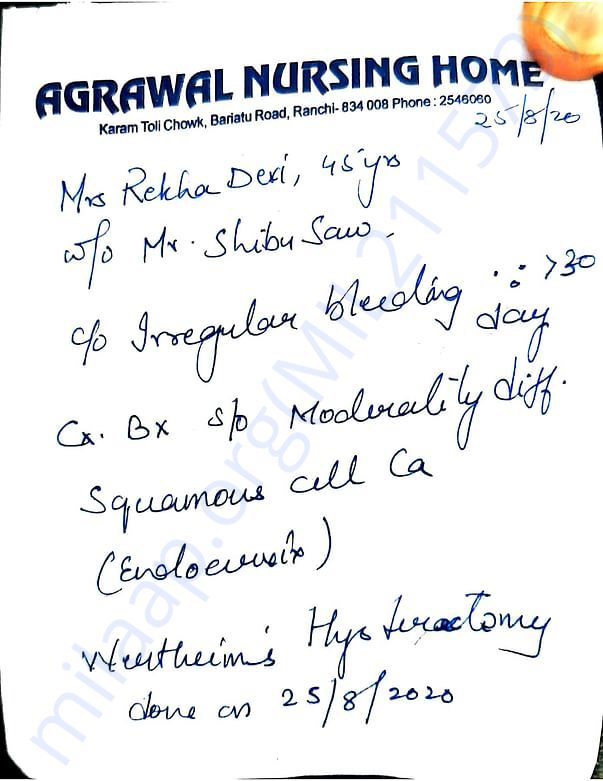 AGRAWAL NURSING HOME
Karam Toli Chowk, Bariatu Road, Ranchi- 834 008 Phone : 2546060
25/8/20
Mrs Rekha Devi, 45 yrs
w/o Mr. Shibu Saw.
c/o Irregular bleeding >30
day
Cx. Bx s/o Moderality diff.
Squamous cell Ca
(Endocervix)
Wertheim's Hysterectomy
done on 25/8/2020